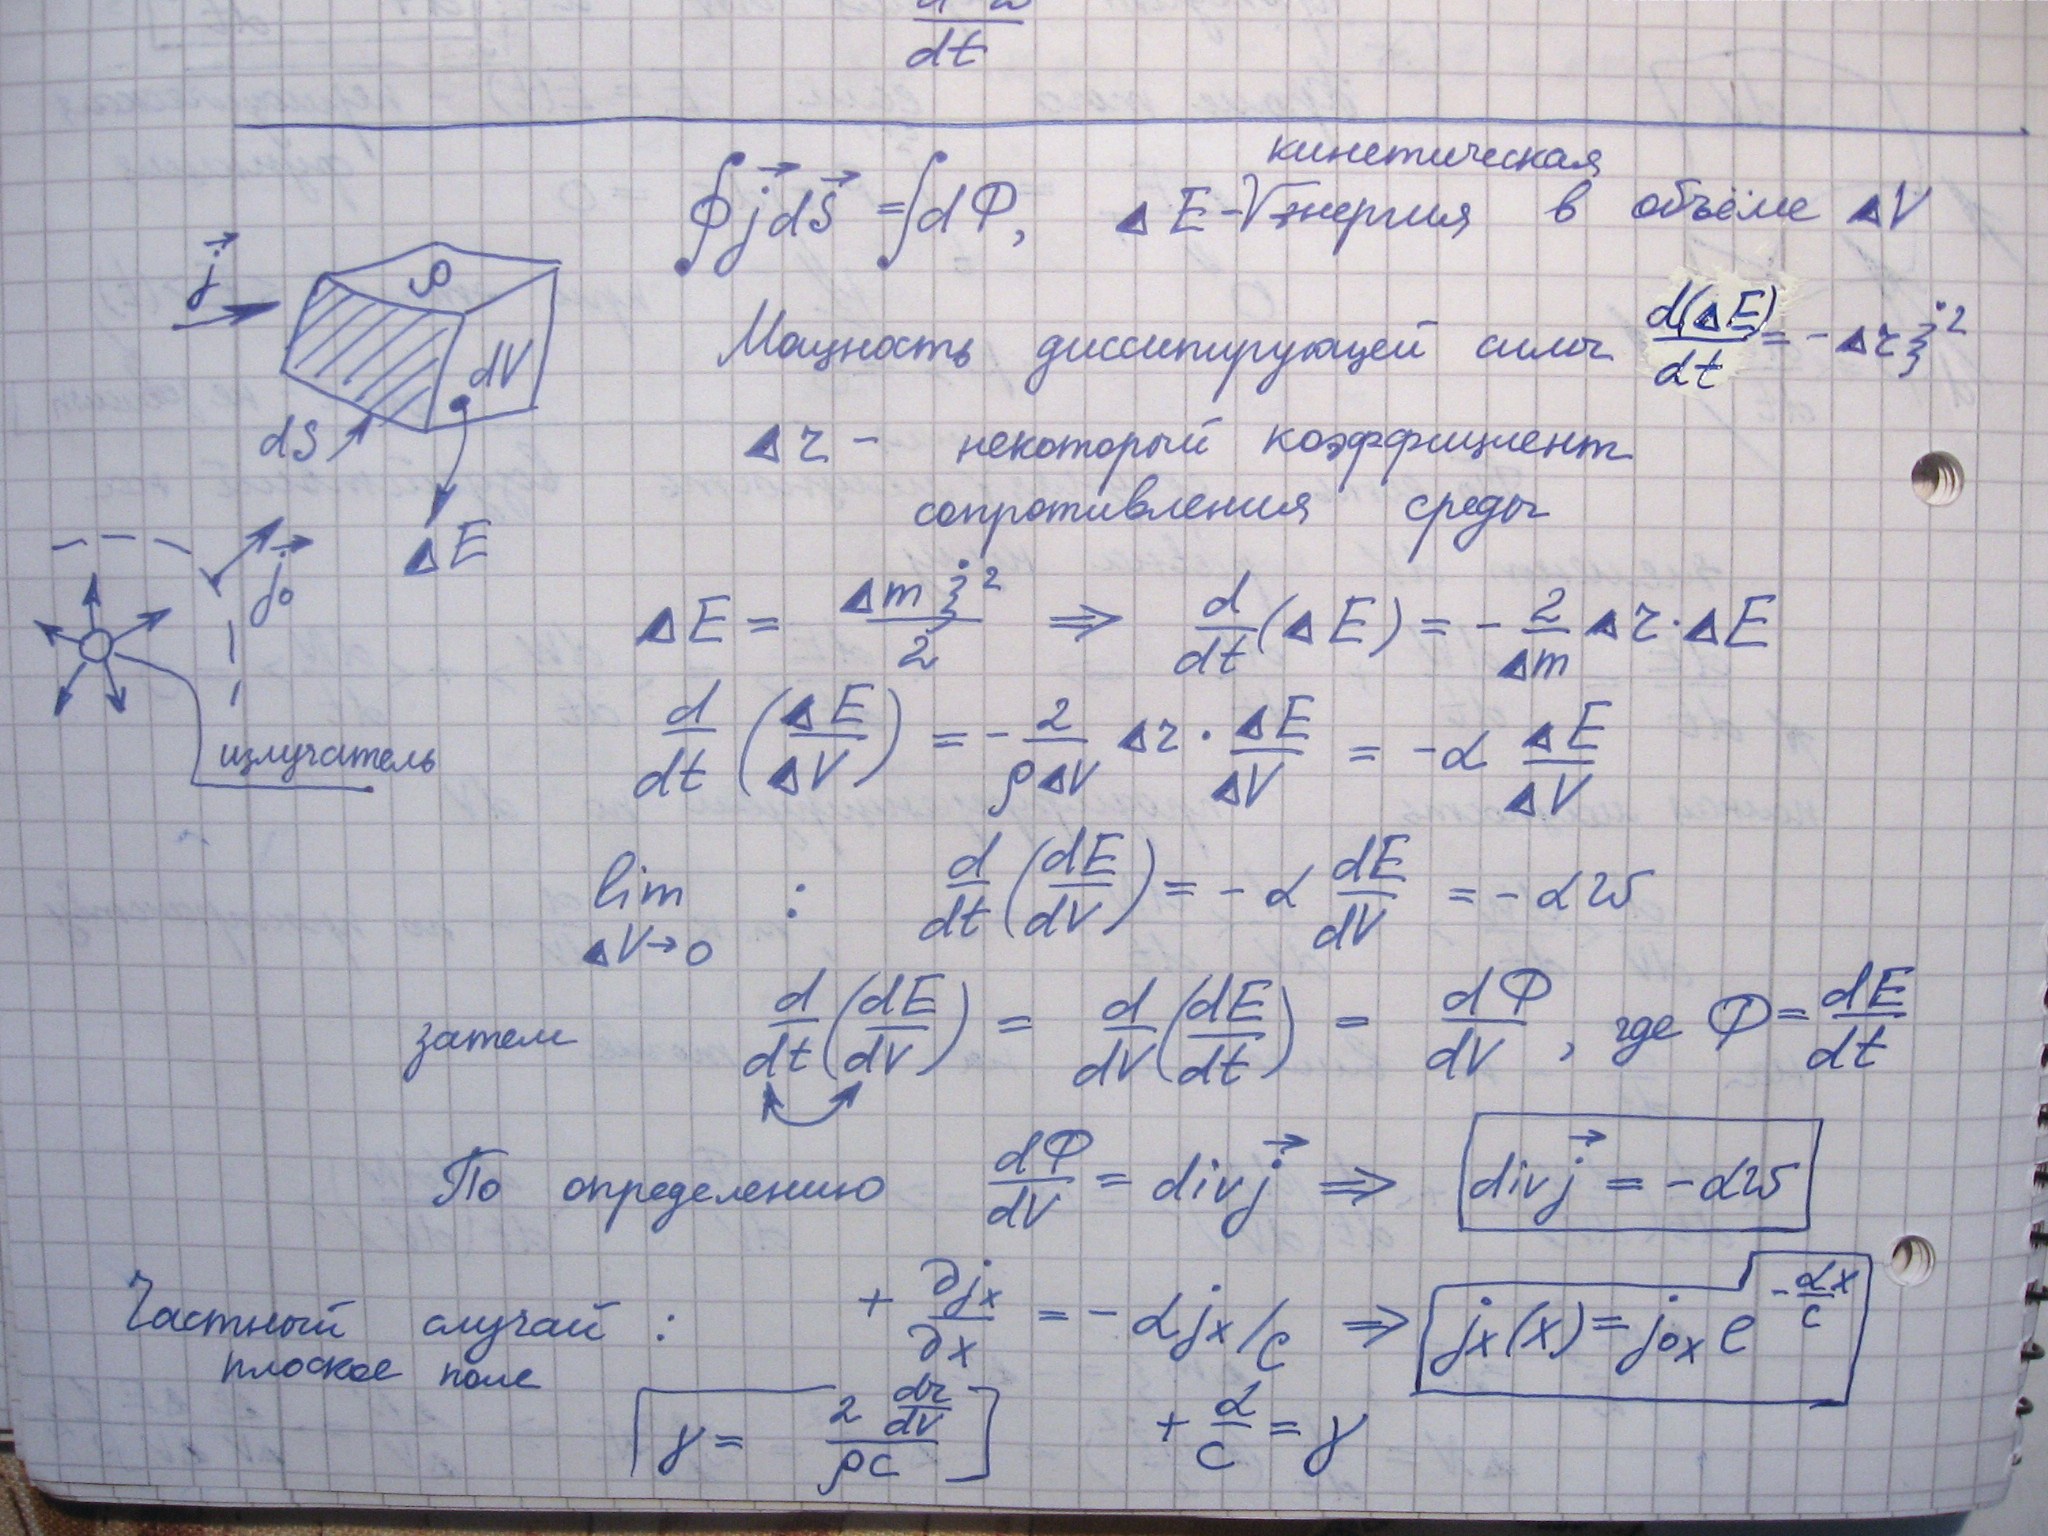 dt
кинетическая
∮ j⃗ dS⃗ = ∫ dФ, ΔE - √ энергия в объёме ΔV
j⃗
ρ
dV
dS
ΔE
Мощность диссипирующей силы d(ΔE)/dt = - Δr ξ̇²
Δr - некоторый коэффициент
сопротивления среды
j⃗₀
излучатель
ΔE = Δm ξ̇²/2 ⇒ d/dt (ΔE) = - 2/Δm Δr · ΔE
d/dt (ΔE/ΔV) = - 2/(ρΔV) Δr · ΔE/ΔV = - α ΔE/ΔV
lim ΔV→0 : d/dt (dE/dV) = - α dE/dV = - αw
затем d/dt (dE/dV) = d/dV (dE/dt) = dФ/dV , где Ф = dE/dt
По определению dФ/dV = div j⃗ ⇒ div j⃗ = - αw
Частный случай : + ∂jx/∂x = - αjx/c ⇒ jx(x) = j₀x e^(-αx/c)
плоское поле
[γ = 2 (dr/dV)/(ρc)] + α/c = γ